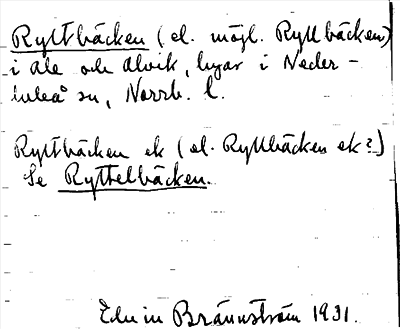 Ryltbäcken (el. mögl. Ryllbäcken)
i Ale och Alvik, byar i Neder-
luleå sn, Norrb. l.
Ryltbäcken ek (el. Ryllbäcken ek?)
Se Ryttelbäcken.
Edvin Brännström 1931.